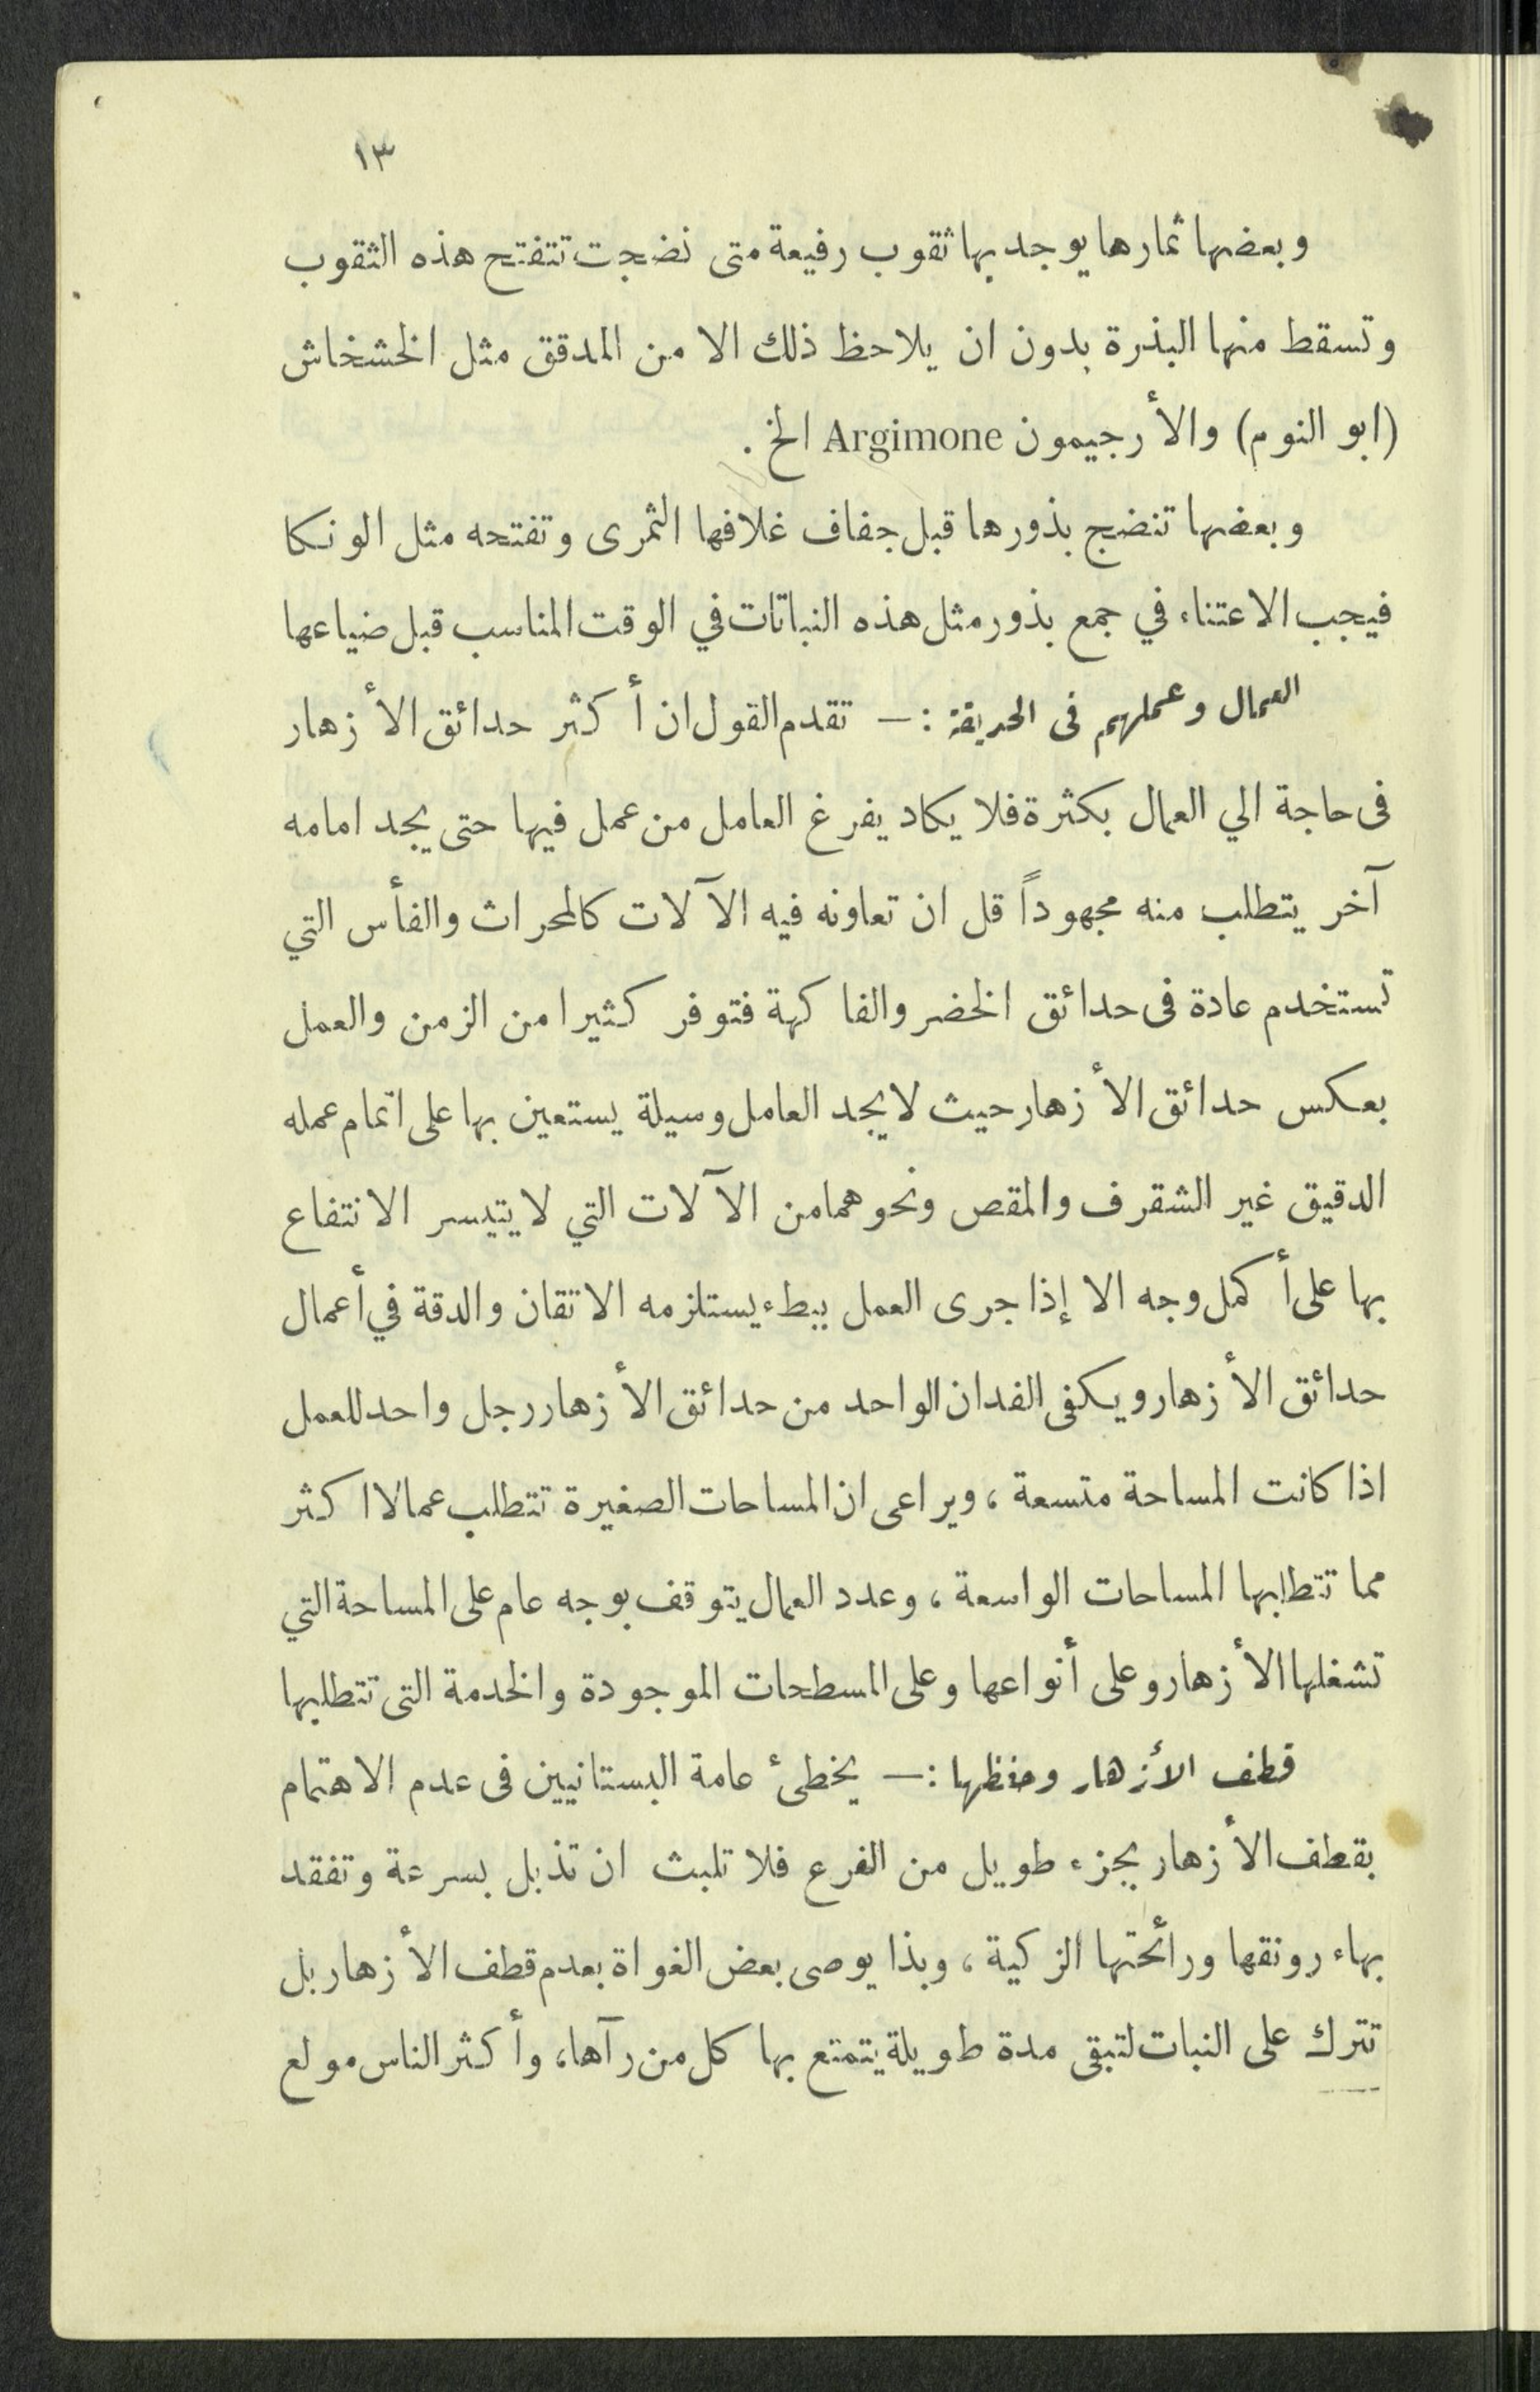 ١٣
وبعضها ثمارها يوجد بها ثقوب رفيعة متى نضجت تتفتح هذه الثقوب
وتسقط منها البذرة بدون ان يلاحظ ذلك الا من المدقق مثل الخشخاش
(ابو النوم) والأرجيمون Argimone الخ .
وبعضها تنضج بذورها قبل جفاف غلافها الثمرى وتفتحه مثل الونكا
فيجب الاعتناء في جمع بذور مثل هذه النباتات في الوقت المناسب قبل ضياعها
العمال وعملهم فى الحديقة :— تقدم القول ان أكثر حدائق الأزهار
فى حاجة الي العمال بكثرة فلا يكاد يفرغ العامل من عمل فيها حتى يجد امامه
آخر يتطلب منه مجهوداً قل ان تعاونه فيه الآلات كالمحراث والفأس التي
تستخدم عادة فى حدائق الخضر والفاكهة فتوفر كثيرا من الزمن والعمل
بعكس حدائق الأزهار حيث لا يجد العامل وسيلة يستعين بها على اتمام عمله
الدقيق غير الشقرف والمقص ونحوهما من الآلات التي لا يتيسر الانتفاع
بها على أكمل وجه الا إذا جرى العمل ببطء يستلزمه الاتقان والدقة في أعمال
حدائق الأزهار ويكفى الفدان الواحد من حدائق الأزهار رجل واحد للعمل
اذا كانت المساحة متسعة ، ويراعى ان المساحات الصغيرة تتطلب عمالا اكثر
مما تتطلبها المساحات الواسعة ، وعدد العمال يتوقف بوجه عام على المساحة التي
تشغلها الأزهار وعلى أنواعها وعلى المسطحات الموجودة والخدمة التى تتطلبها
قطف الأزهار وحفظها :— يخطئ عامة البستانيين فى عدم الاهتمام
بقطف الأزهار بجزء طويل من الفرع فلا تلبث ان تذبل بسرعة وتفقد
بهاء رونقها ورائحتها الزكية ، وبذا يوصى بعض الغواة بعدم قطف الأزهار بل
تترك على النبات لتبقى مدة طويلة يتمتع بها كل من رآها، وأكثر الناس مولع